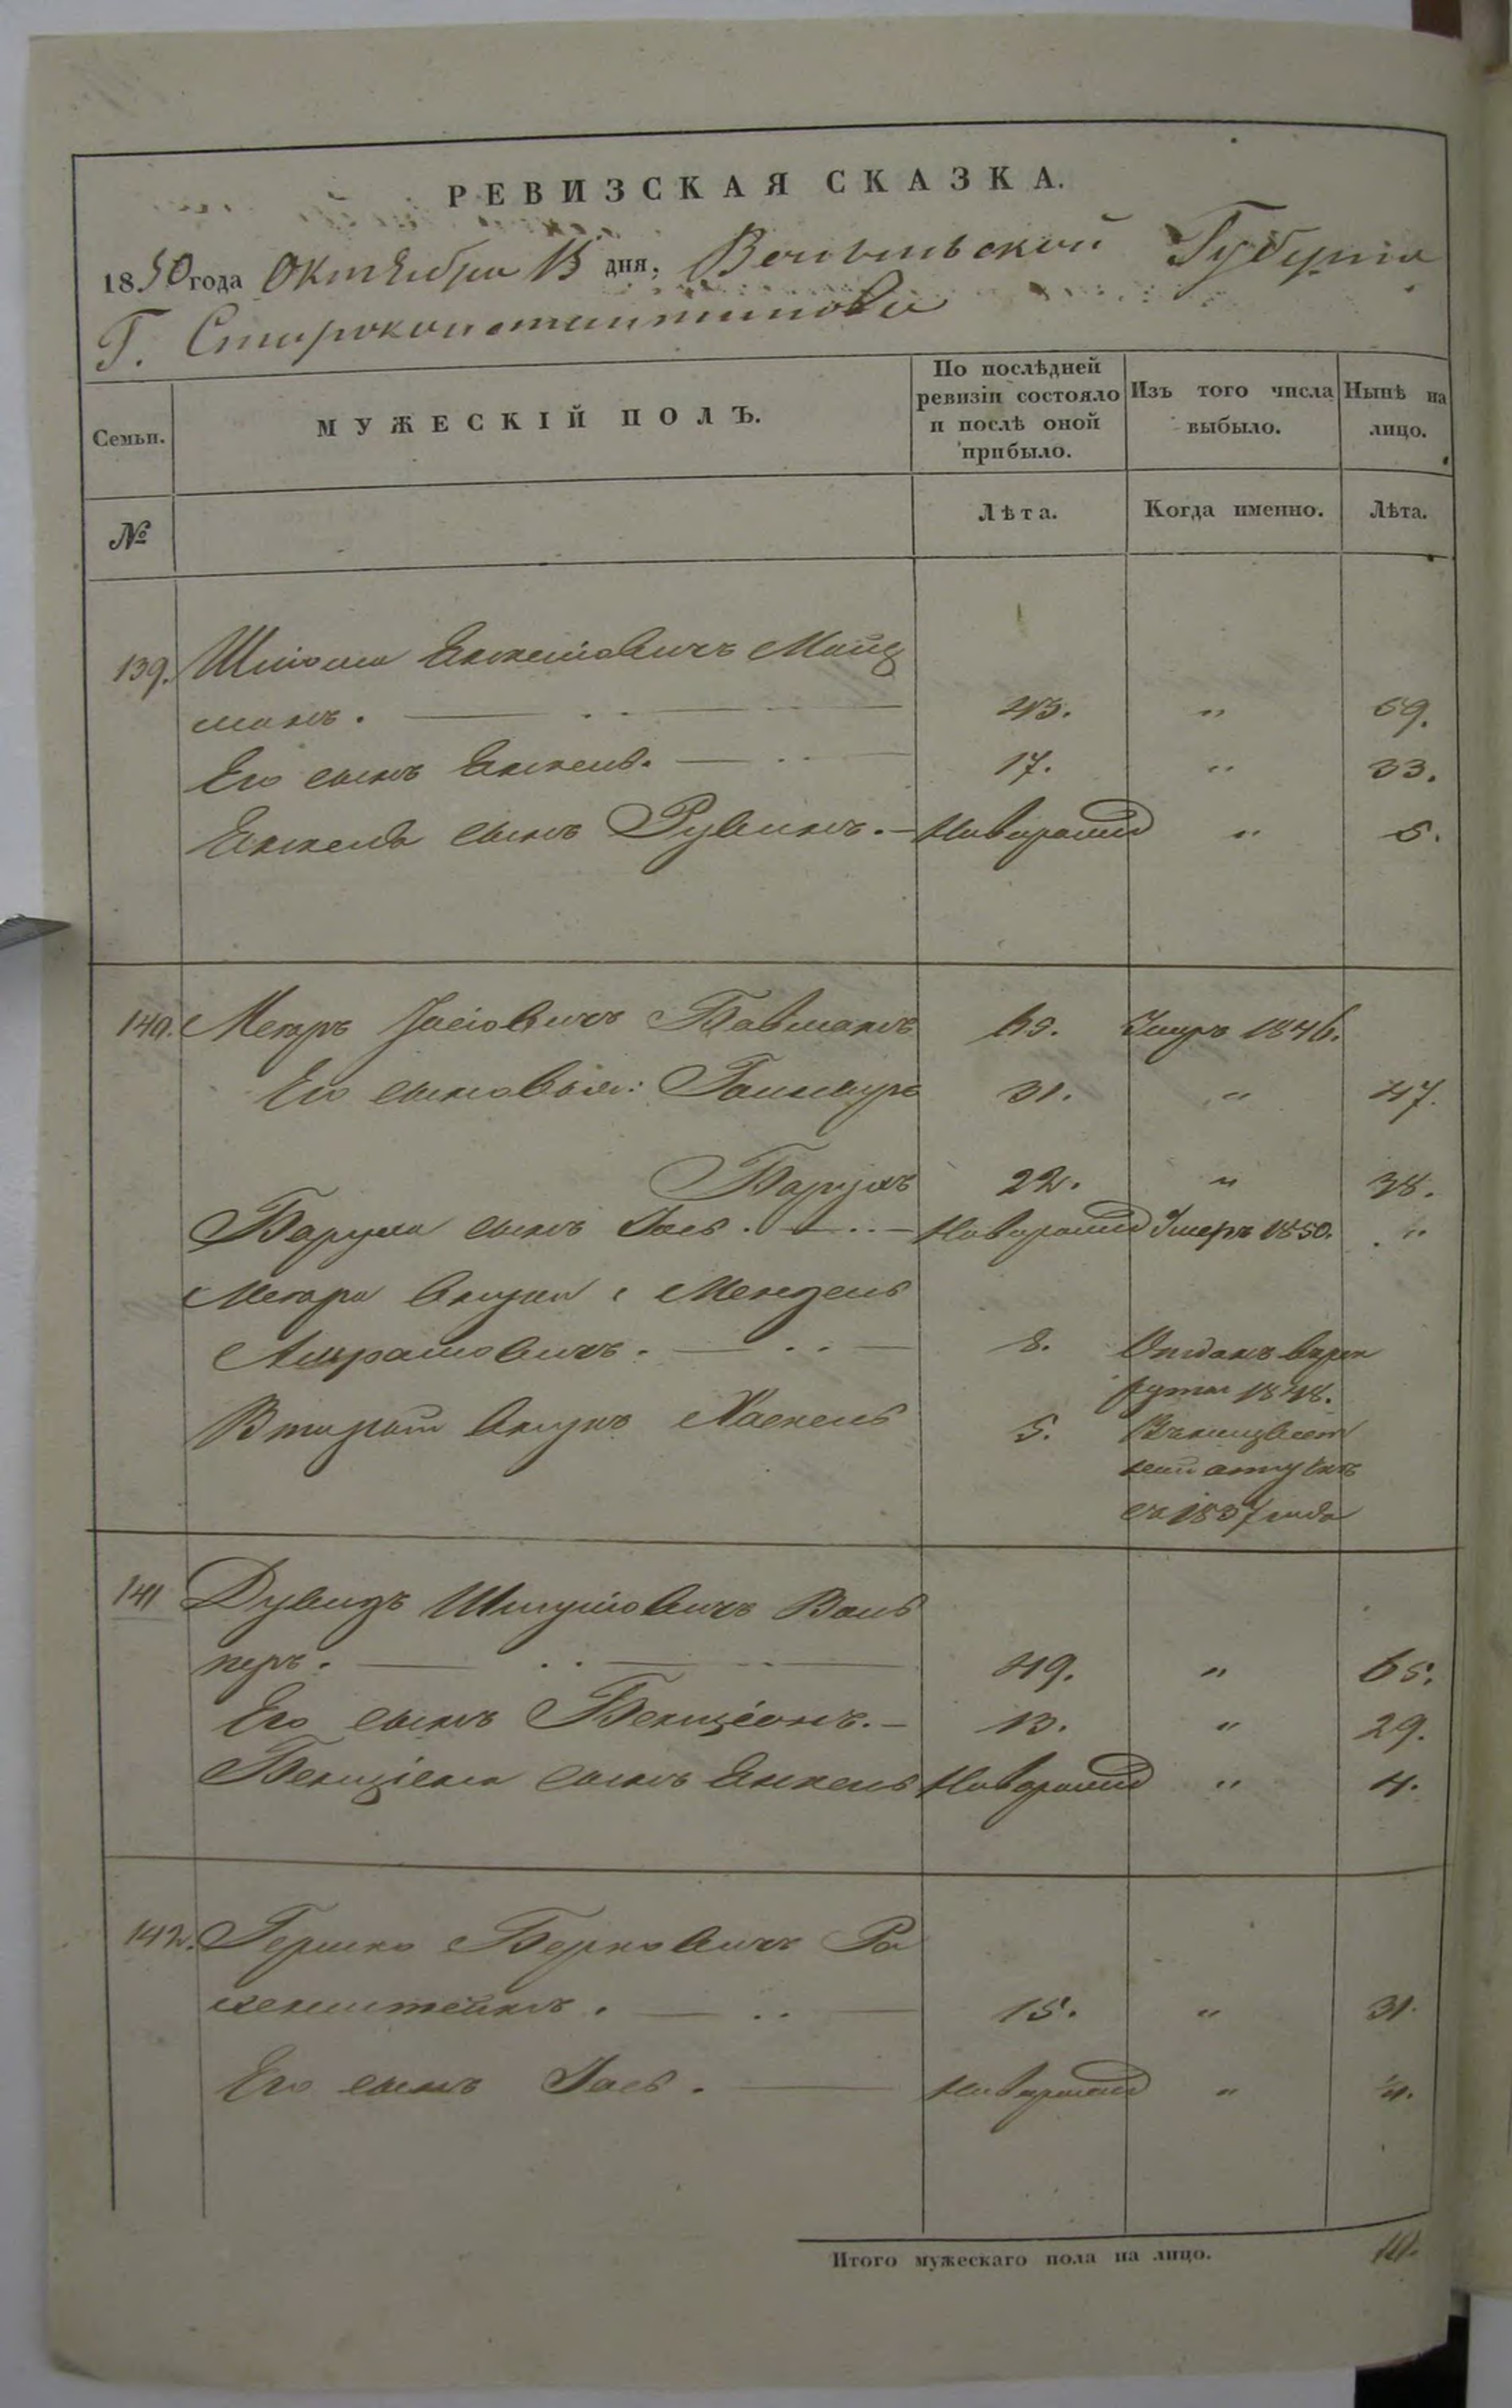 РЕВИЗСКАЯ СКАЗКА.
1850 года Октября 13 дня, Волынской Губернiи
Г. Староконстантинова
Семьи.
МУЖЕСКІЙ ПОЛЪ.
По послѣдней ревизіи состояло и послѣ оной прибыло.
Изъ того числа выбыло.
Нынѣ на лицо.
№
Лѣта.
Когда именно.
Лѣта.
139. Шліома Янкеліовичъ
манъ. 43. " 59.
Его сынъ Янкель. 17. " 33.
Янкеля сынъ Рувинъ. Новорожд " 5.
140. Мееръ Іосіовичъ 65. Умеръ 1846.
Его сыновья: 31. " 47.
Барухъ 22. " 38.
Баруха сынъ Іось. Новорожд Умеръ 1850. "
Меера внуки: Мендель
Абрамовичъ. 8. Отданъ в рек
руты 1848.
Второй внукъ Хаскель 5.
с 1837 года
141 Дувидъ Шмуліовичъ Валь
перъ. 49. " 65.
Его сынъ Бенціонъ. 13. " 29.
Бенціона сынъ Янкель Новорожд " 4.
142. Гершко Берковичъ Ро
зенштейнъ. 15. " 31.
Его сынъ Іось. Новорожд "
Итого мужескаго пола на лицо. 10.